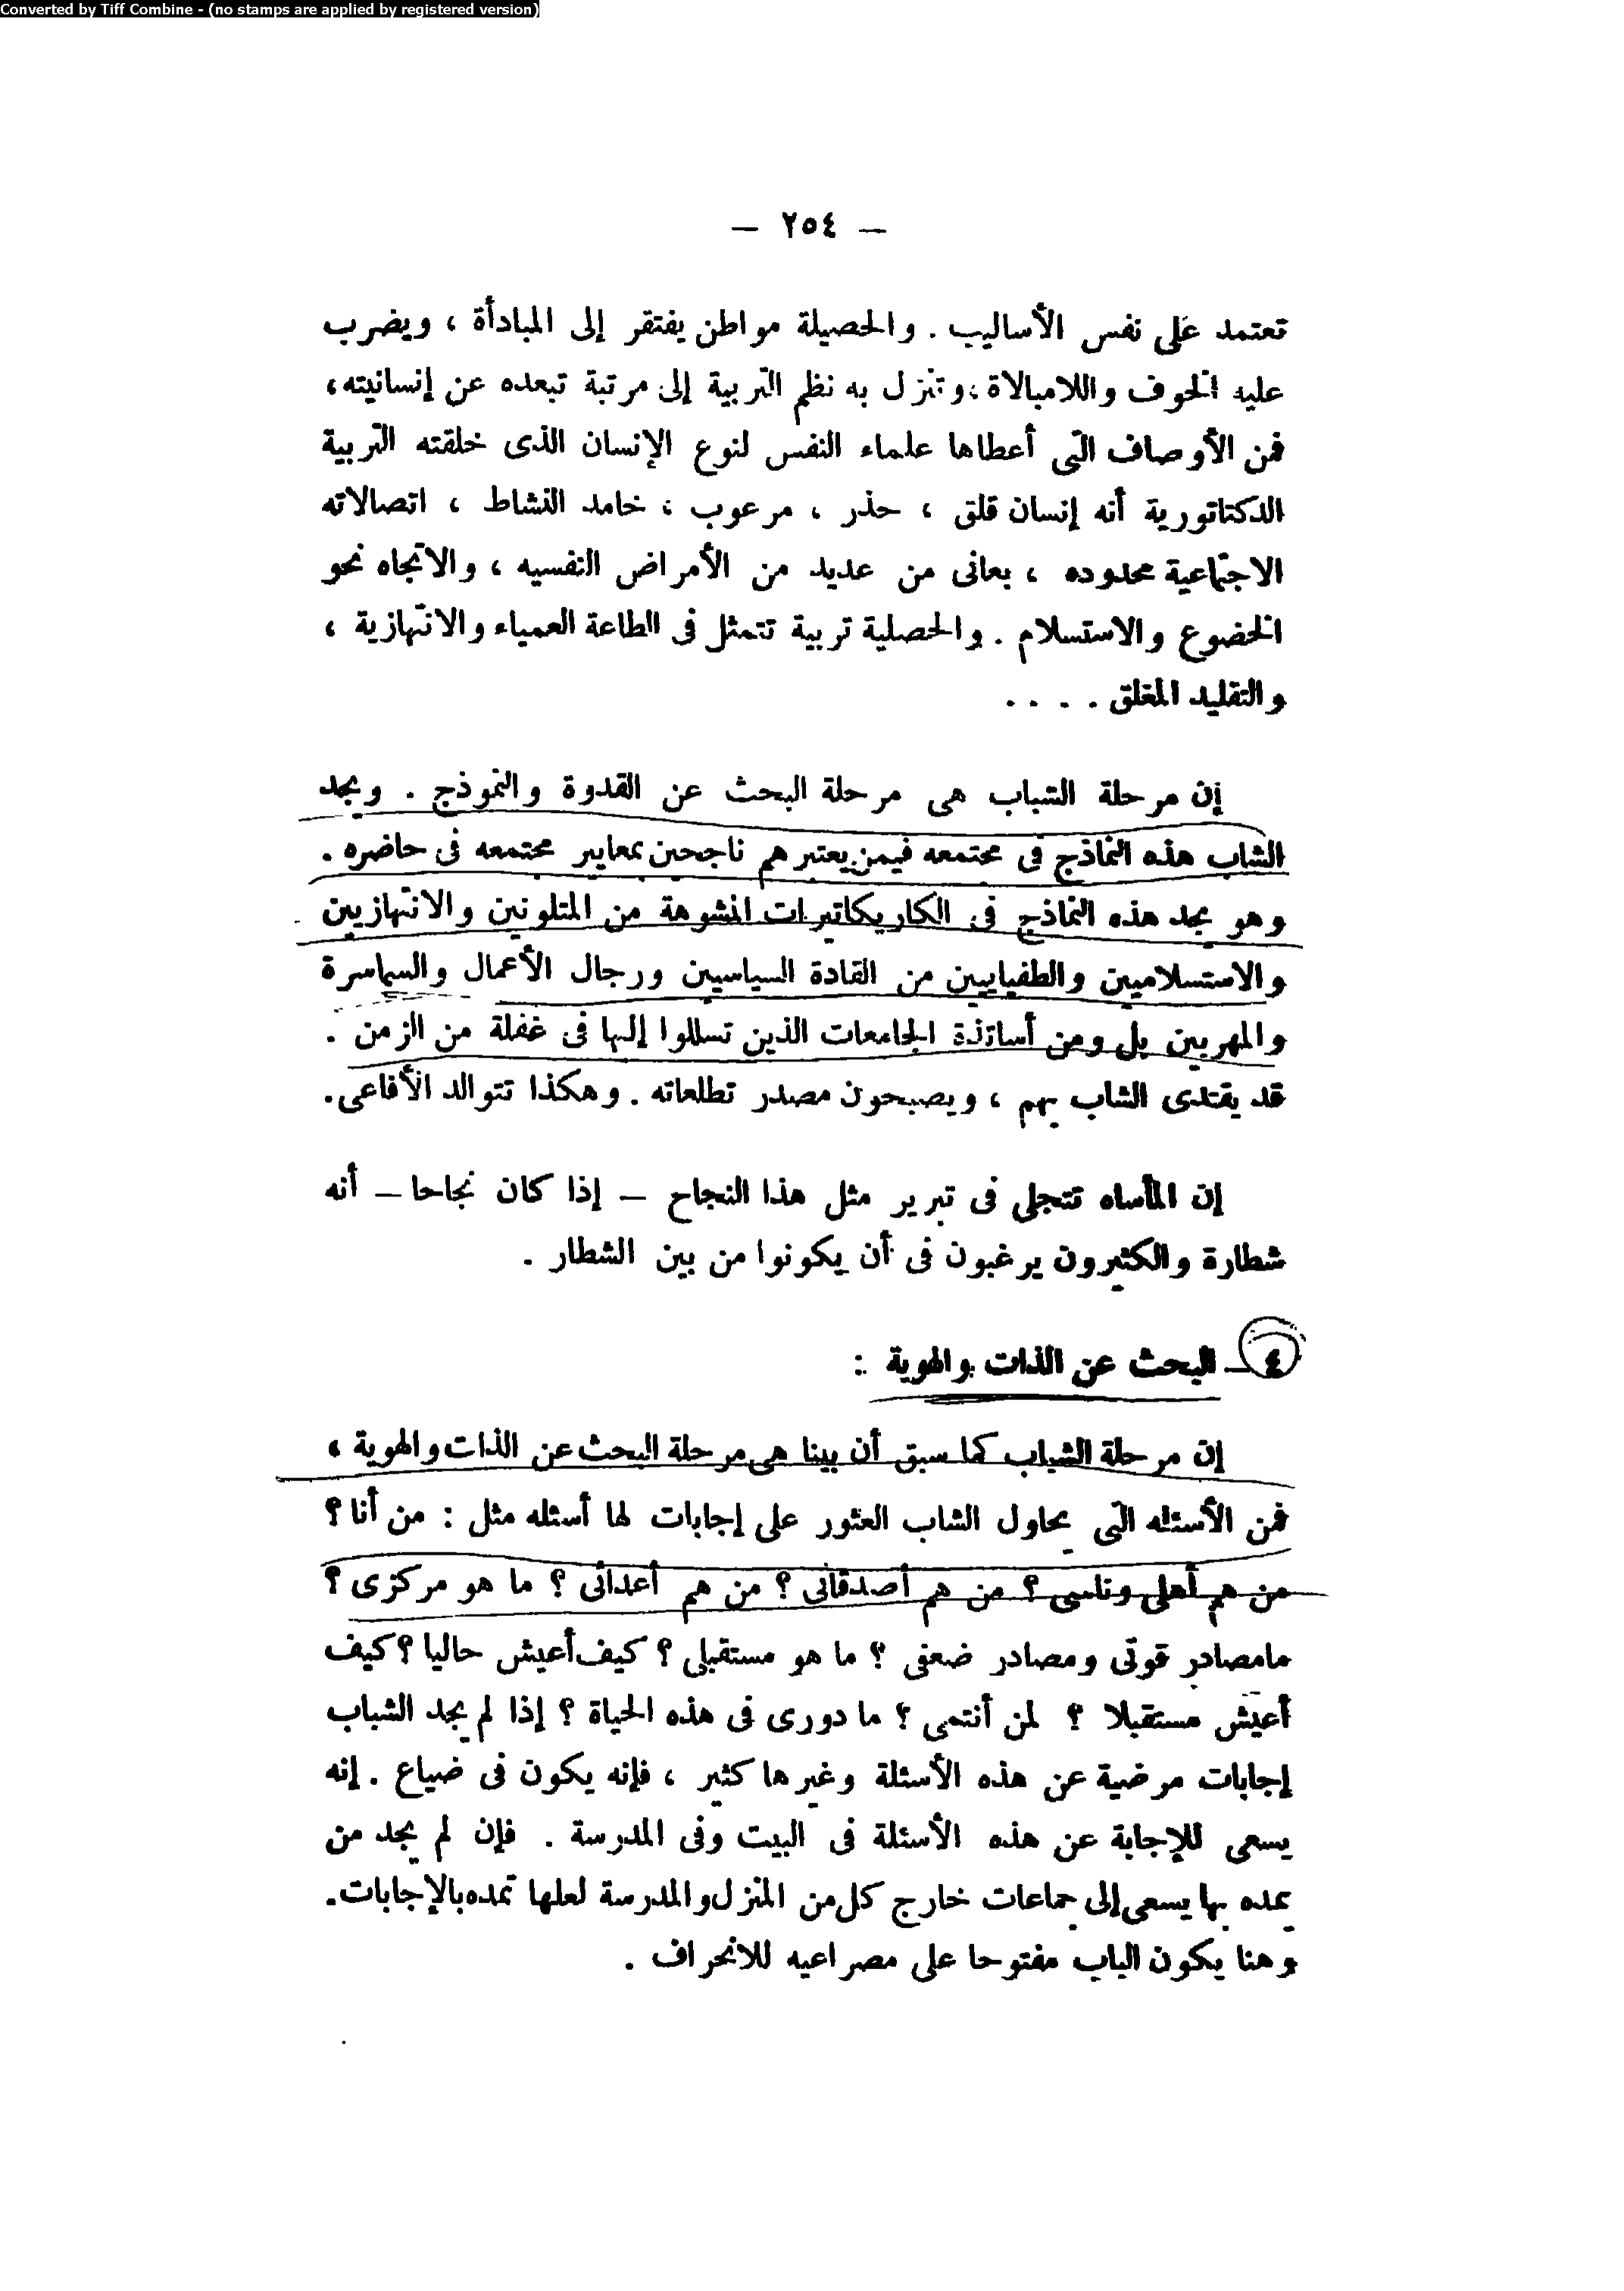 Converted by Tiff Combine - (no stamps are applied by registered version)
— ٢٥٤ —
تعتمد على نفس الأساليب . والحصيلة مواطن يفتقر إلى المبادأة ، ويضرب
عليه الخوف واللامبالاة ، وتنزل به نظم التربية إلى مرتبة تبعده عن إنسانيته ،
فمن الأوصاف التى أعطاها علماء النفس لنوع الإنسان الذى خلقته التربية
الدكتاتورية أنه إنسان قلق ، حذر ، مرعوب ، خامد النشاط ، اتصالاته
الاجتماعية محدوده ، يعانى من عديد من الأمراض النفسيه ، والاتجاه نحو
الخضوع والاستسلام . والحصلية تربية تتمثل فى الطاعة العمياء والانتهازية ،
والتقليد المغلق . . . .
إن مرحلة الشباب هى مرحلة البحث عن القدوة والنموذج . ويجد
الشاب هذه النماذج فى مجتمعه فيمن يعتبرهم ناجحين بمعايير مجتمعه فى حاضره .
وهو يجد هذه النماذج فى الكاريكاتيرات المشوهة من المتلونين والانتهازيين
والاستسلاميين والطفيايين من القادة السياسيين ورجال الأعمال والسماسرة
والمهربين بل ومن أساتذة الجامعات الذين تسللوا إليها فى غفلة من الزمن .
قد يقتدى الشاب بهم ، ويصبحون مصدر تطلعاته . وهكذا تتوالد الأفاعى .
إن المأساه تتجلى فى تبرير مثل هذا النجاح — إذا كان نجاحا — أنه
شطارة والكثيرون يرغبون فى أن يكونوا من بين الشطار .
٤ — البحث عن الذات والهوية :
إن مرحلة الشباب كما سبق أن بينا هى مرحلة البحث عن الذات والهوية ،
فمن الأسئله التى يحاول الشاب العثور على إجابات لها أسئله مثل : من أنا ؟
من هم أهلى وناسى ؟ من هم أصدقائى ؟ من هم أعدائى ؟ ما هو مركزى ؟
مامصادر قوتى ومصادر ضعفى ؟ ما هو مستقبلى ؟ كيف أعيش حاليا ؟ كيف
أعيش مستقبلا ؟ لمن أنتمى ؟ ما دورى فى هذه الحياة ؟ إذا لم يجد الشباب
إجابات مرضية عن هذه الأسئلة وغيرها كثير ، فإنه يكون فى ضياع . إنه
يسعى للإجابة عن هذه الأسئلة فى البيت وفى المدرسة . فإن لم يجد من
يمده بها يسعى إلى جماعات خارج كل من المنزل والمدرسة لعلها تمده بالإجابات .
وهنا يكون الباب مفتوحا على مصراعيه للانحراف .